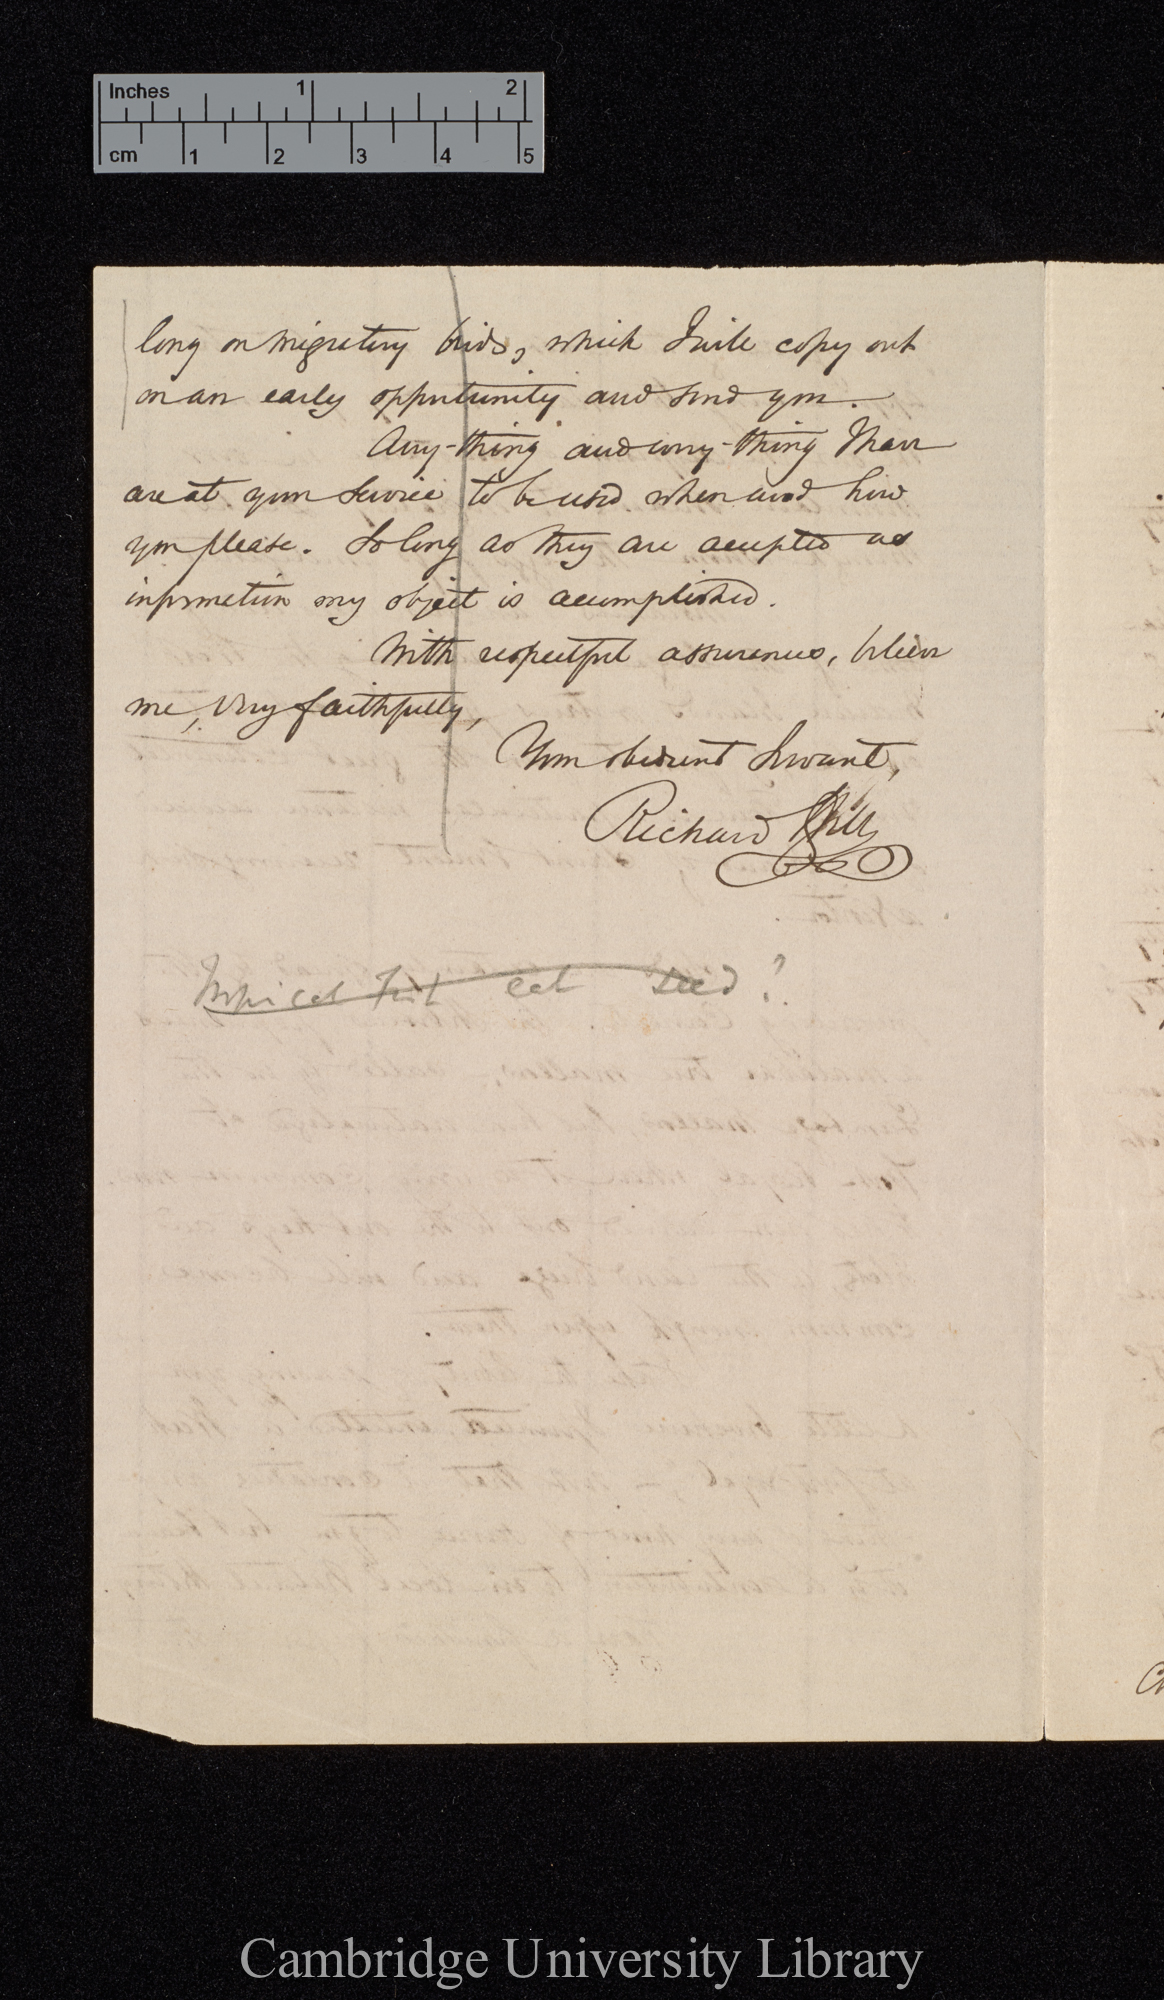 Inches 1 2
cm 1 2 3 4 5
long on migratory birds, which I will copy out
on an early opportunity and send you.
Any-thing and every-thing I have
are at your service to be used when and how
you please. So long as they are accepted as
information my object is accomplished.
With respectful assurances, believe
me, very faithfully,
Your obedient Servant,
Richard Hill
Tropical eat seed?
Cambridge University Library